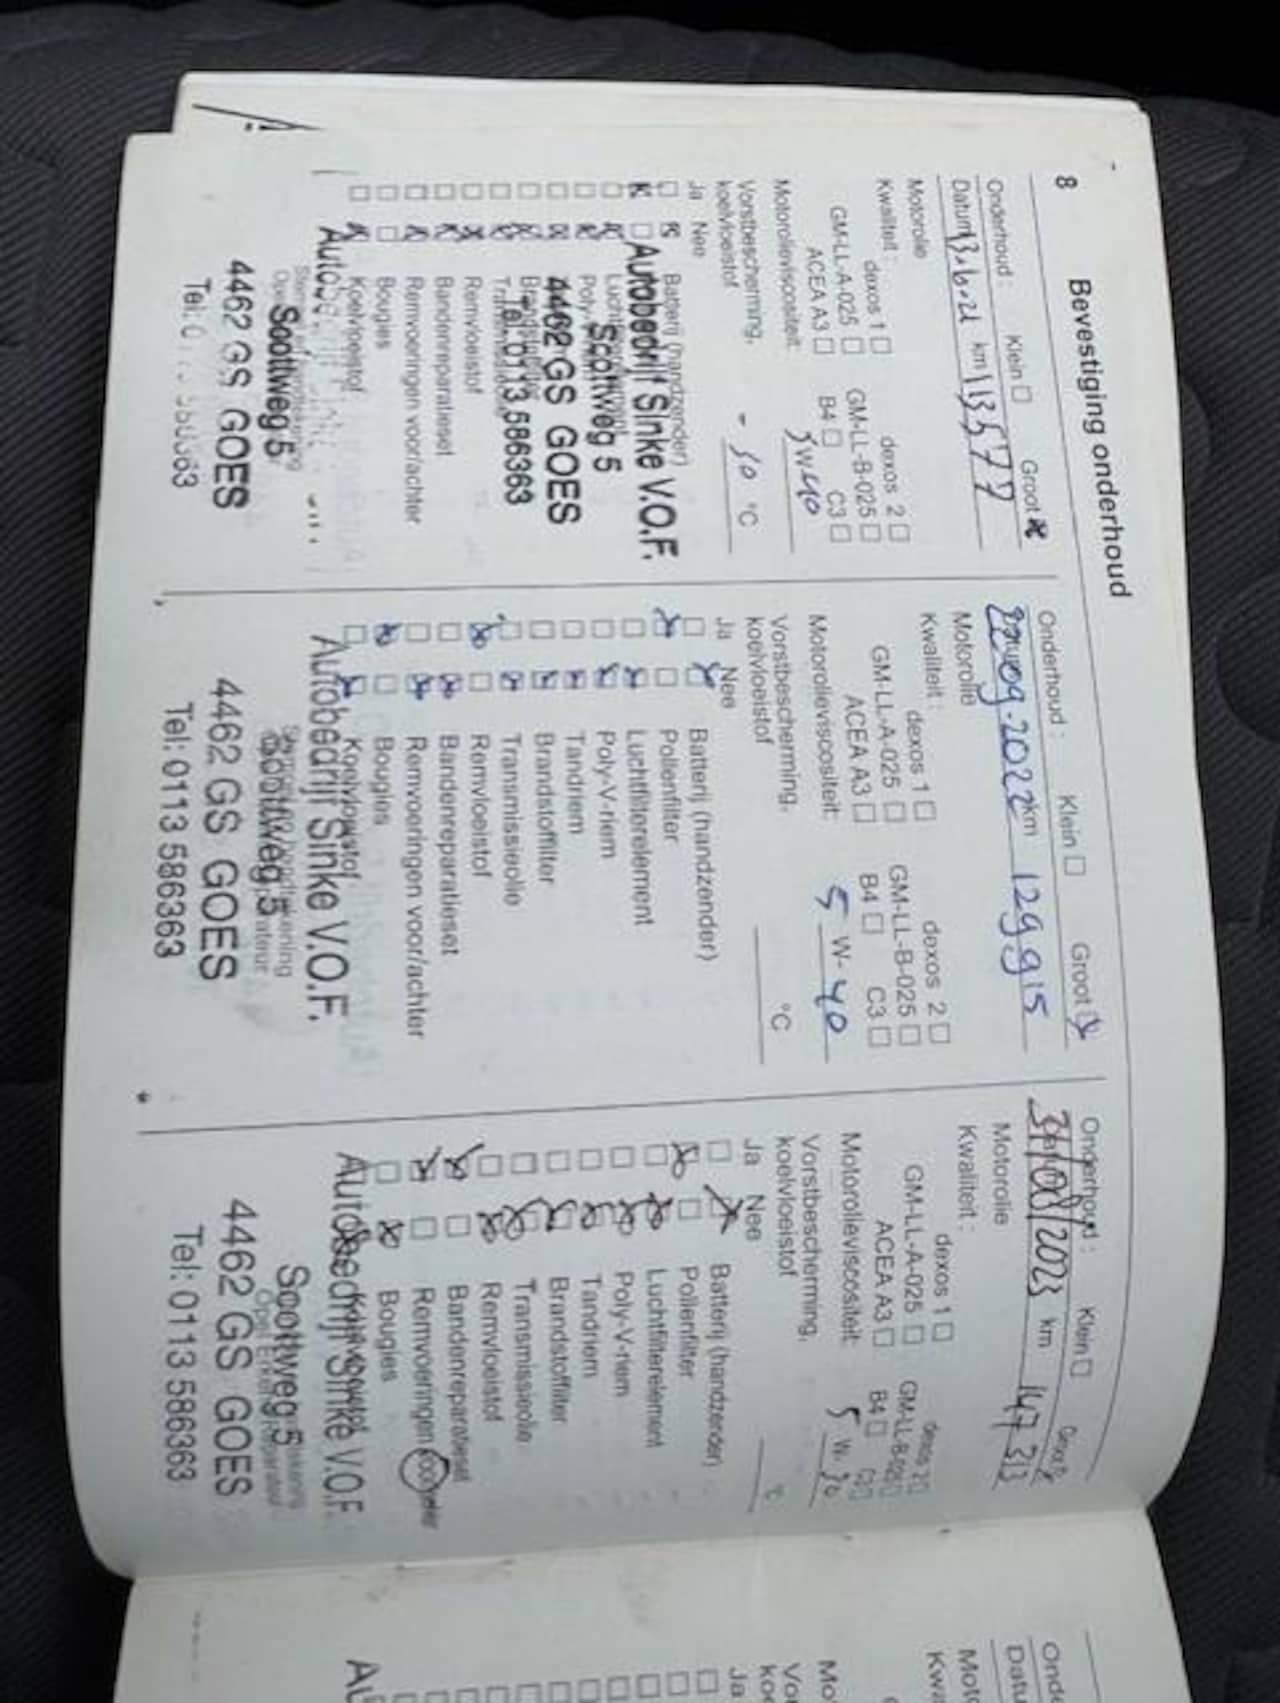 8 Bevestiging onderhoud
Onderhoud : Klein Groot
Datum 13.10.21 km 113,577
Motorolie
Kwaliteit : dexos 1 dexos 2
GM-LL-A-025 GM-LL-B-025
ACEA A3 B4 C3
Motorolieviscositeit: 5W40
Vorstbescherming,
koelvloeistof - 30 °C
Ja Nee
Batterij (handzender)
Autobedrijf Sinke V.O.F.
Scottweg 5
4462 GS GOES
Tel. 0113 586363
Remvloeistof
Bandenreparatieset
Remvoeringen voor/achter
Bougies
Koelvloeistof
Scottweg 5
4462 GS GOES
Onderhoud : Klein Groot
2022 km 129915
Motorolie
Kwaliteit : dexos 1 dexos 2
GM-LL-A-025 GM-LL-B-025
ACEA A3 B4 C3
Motorolieviscositeit: 5 W- 40
Vorstbescherming,
koelvloeistof °C
Ja Nee
Batterij (handzender)
Pollenfilter
Luchtfilterelement
Poly-V-riem
Tandriem
Brandstoffilter
Transmissieolie
Remvloeistof
Bandenreparatieset
Remvoeringen voor/achter
Bougies
Koelvloeistof
Autobedrijf Sinke V.O.F.
Scottweg 5
4462 GS GOES
Tel: 0113 586363
Onderhoud : Klein Groot
31/08/2023 km 147 313
Motorolie
Kwaliteit : dexos 1 dexos 2
GM-LL-A-025 GM-LL-B-025
ACEA A3 B4 C3
Motorolieviscositeit: 5 W- 30
Vorstbescherming,
koelvloeistof °C
Ja Nee
Batterij (handzender)
Pollenfilter
Luchtfilterelement
Poly-V-riem
Tandriem
Brandstoffilter
Transmissieolie
Remvloeistof
Bandenreparatieset
Remvoeringen voor/achter
Bougies
Autobedrijf Sinke V.O.F.
Scottweg 5
4462 GS GOES
Tel: 0113 586363
Onde
Datu
Moto
Kwa
Mo
Vo
koe
Ja
Au